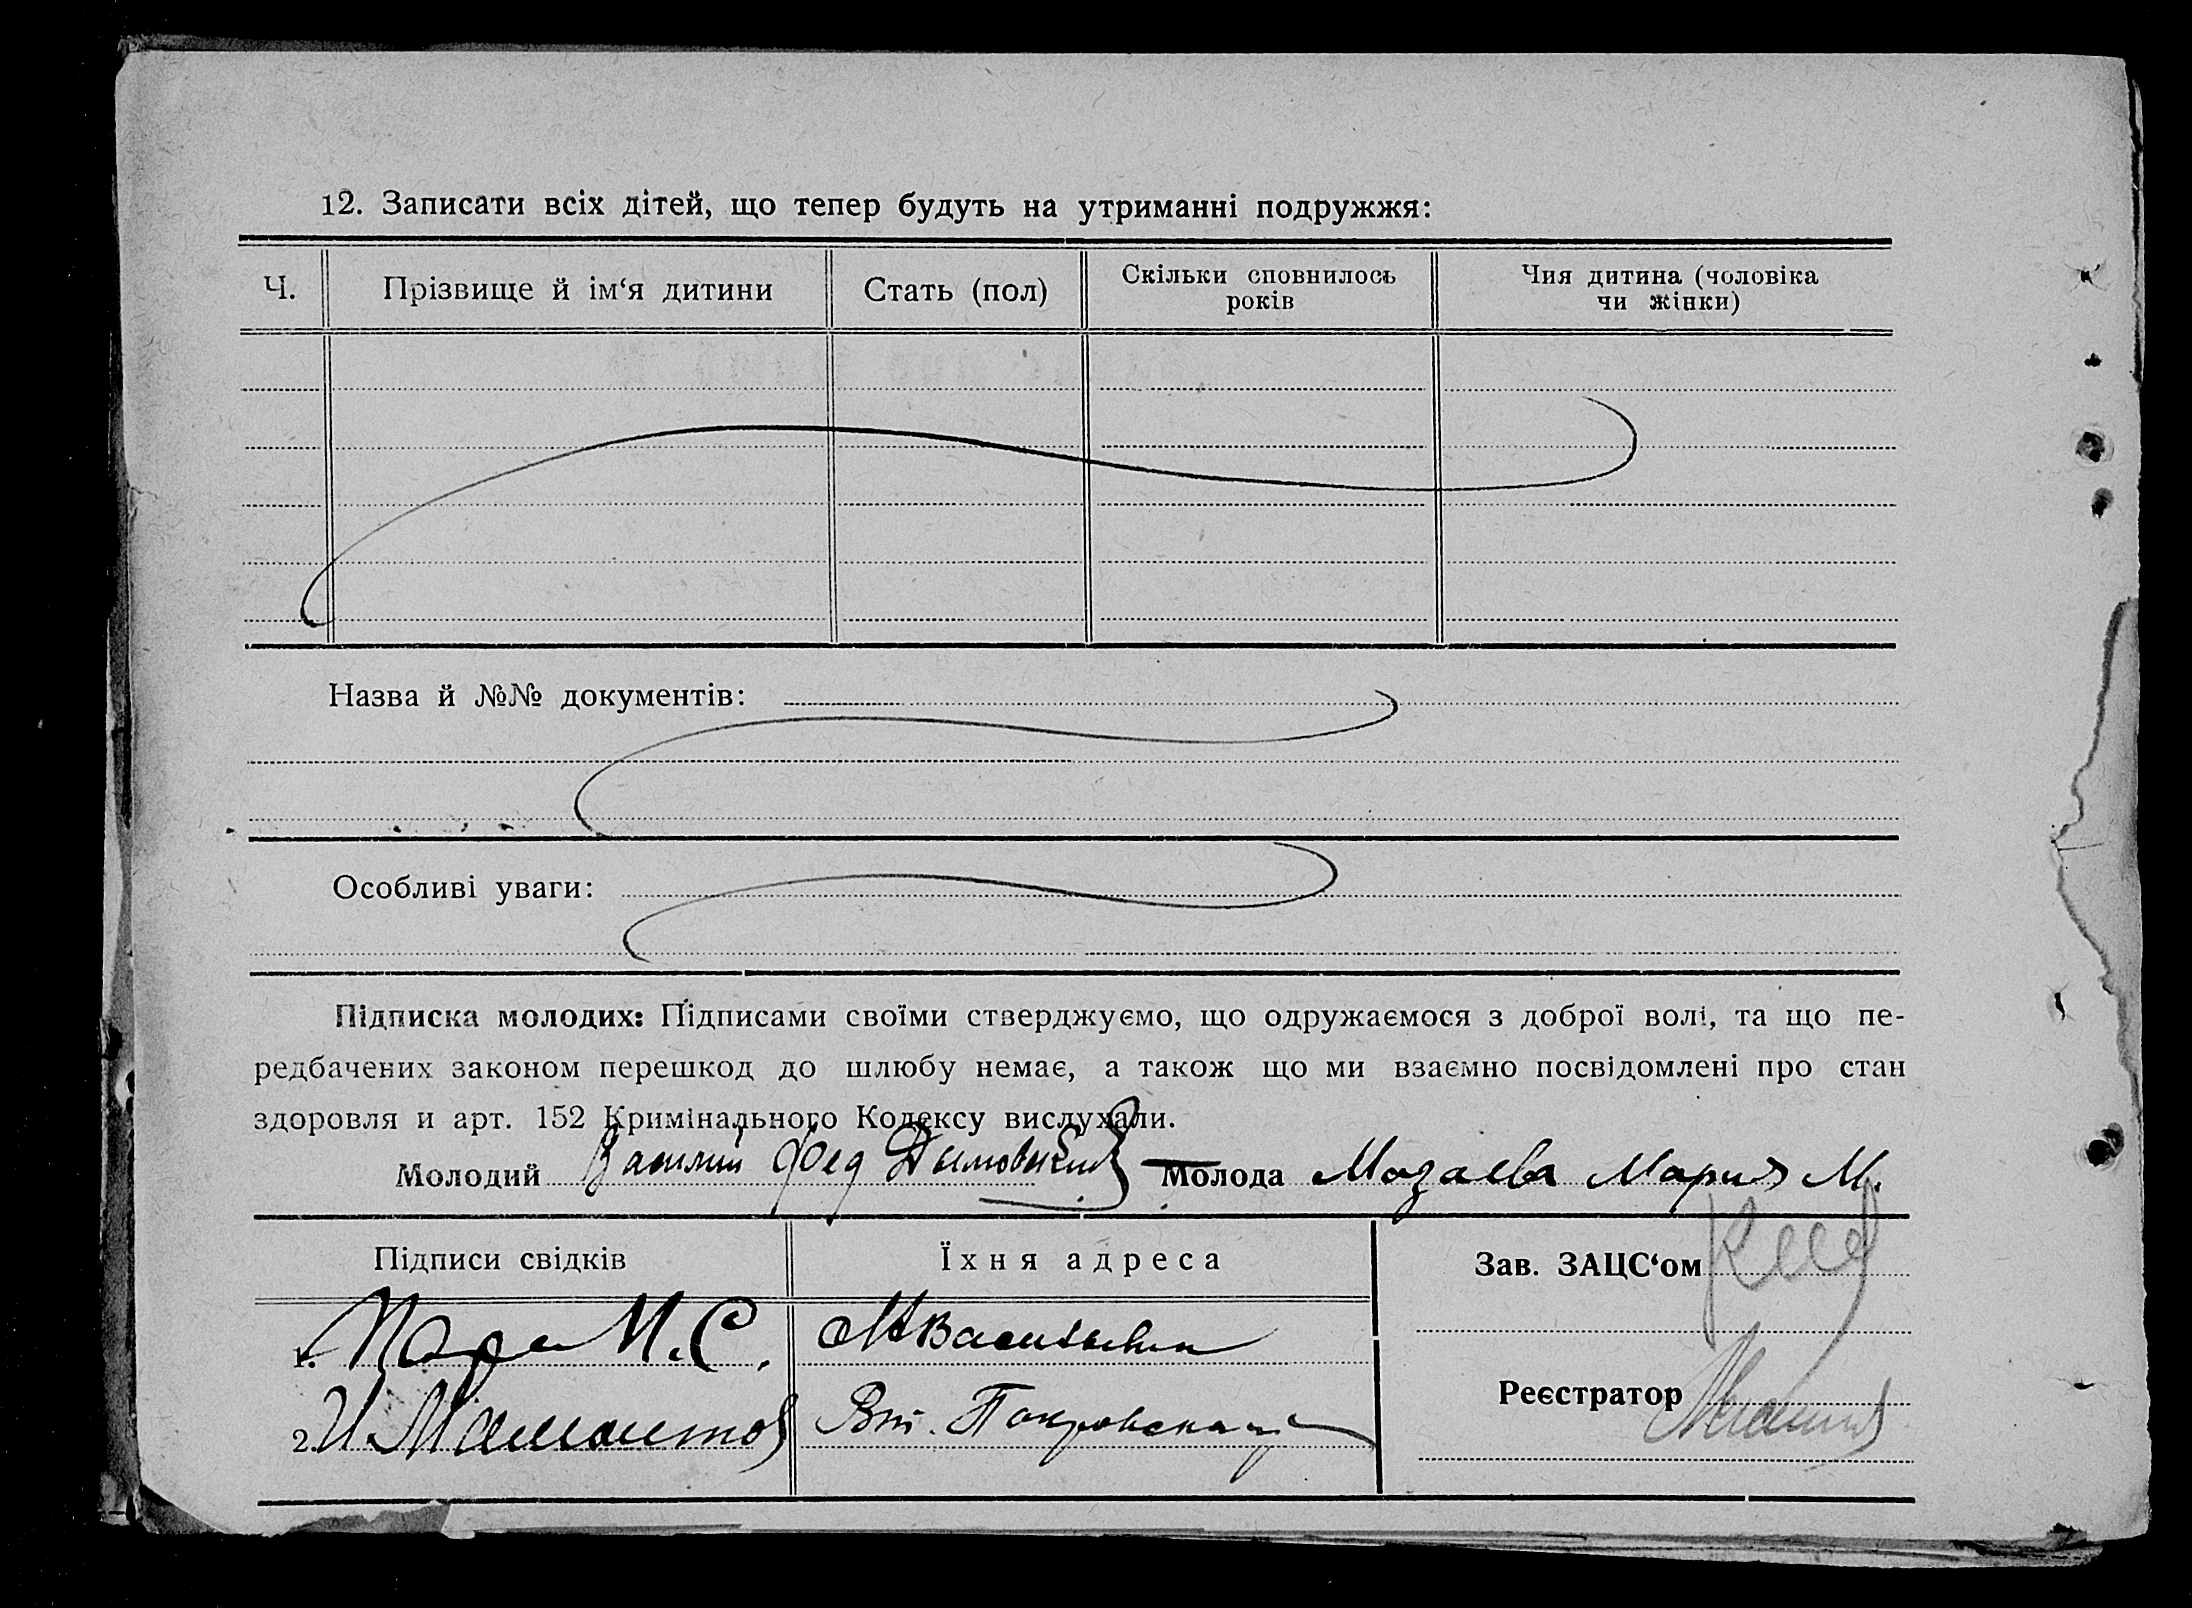 12. Записати всіх дітей, що тепер будуть на утриманні подружжя:
Ч. Прізвище й ім‘я дитини Стать (пол) Скільки сповнилось років Чия дитина (чоловіка чи жінки)
Назва й №№ документів:
Особливі уваги:
Підписка молодих: Підписами своїми стверджуємо, що одружаємося з доброї волі, та що пе-
редбачених законом перешкод до шлюбу немає, а також що ми взаємно посвідомлені про стан
здоровля и арт. 152 Кримінального Кодексу вислухали.
Молодий Василий Фед Дымовский Молода Мазаева Мария М.
Підписи свідків Їхня адреса Зав. ЗАЦС‘ом
1. М. С.
2. И Мамонтов Покровская Реєстратор